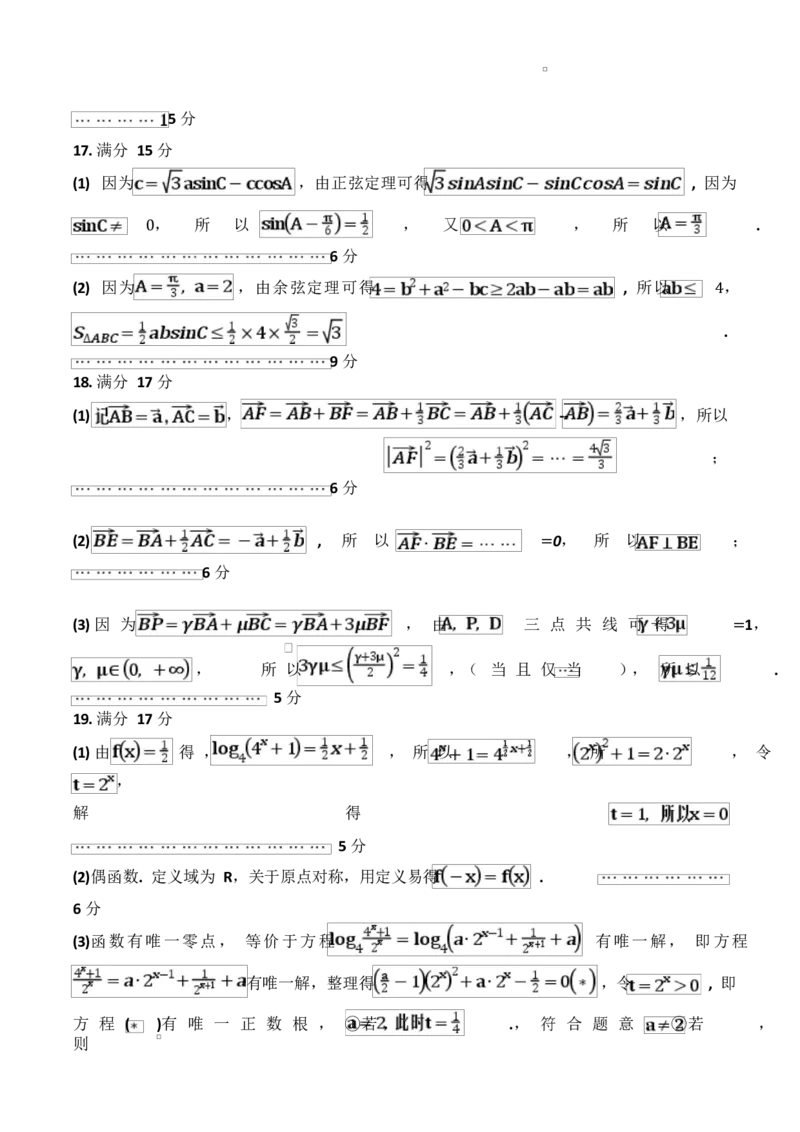 ⋯ ⋯ ⋯ ⋯ 15 分
17. 满分 15 分
(1) 因为 c=√3asinC−ccosA ，由正弦定理可得 √3sinAsinC−sinCcosA=sinC ，因为
sinC≠ 0， 所 以 sin(A−π/6)=1/2 ， 又 0<A<π ， 所 以 A=π/3 ．
⋯ ⋯ ⋯ ⋯ ⋯ ⋯ ⋯ ⋯ ⋯ ⋯ ⋯ ⋯ 6 分
(2) 因为 A=π/3, a=2 ，由余弦定理可得 4=b²+a²−bc≥2ab−ab=ab ，所以 ab≤ 4，
S△ABC=1/2absinC≤1/2×4×√3/2=√3 ．
⋯ ⋯ ⋯ ⋯ ⋯ ⋯ ⋯ ⋯ ⋯ ⋯ ⋯ ⋯ 9 分
18. 满分 17 分
(1) 记AB⃗=a⃗, AC⃗=b⃗ ， AF⃗=AB⃗+BF⃗=AB⃗+1/3BC⃗=AB⃗+1/3(AC⃗-AB⃗)=2/3a⃗+1/3b⃗ ，所以
|AF⃗|²=(2/3a⃗+1/3b⃗)²=⋯=4√3/3 ；
⋯ ⋯ ⋯ ⋯ ⋯ ⋯ ⋯ ⋯ ⋯ ⋯ ⋯ ⋯ 6 分
(2) BE⃗=BA⃗+1/2AC⃗=−a⃗+1/2b⃗ ， 所 以 AF⃗·BE⃗=⋯⋯ =0， 所 以 AF⊥BE ；
⋯ ⋯ ⋯ ⋯ ⋯ ⋯ 6 分
(3) 因 为 BP⃗=γBA⃗+μBC⃗=γBA⃗+3μBF⃗ ， 由 A, P, D 三 点 共 线 可 得 γ+3μ =1，
γ, μ∈(0, +∞) ， 所 以 3γμ≤((γ+3μ)/2)²=1/4 ，（ 当 且 仅 当 ⋯ ）， 所 以 γμ≤1/12 ．
⋯ ⋯ ⋯ ⋯ ⋯ ⋯ ⋯ ⋯ ⋯ 5 分
19. 满分 17 分
(1) 由 f(x)=1/2 得 ， log₄(4ˣ+1)=1/2x+1/2 ， 所 以 4ˣ+1=4^(1/2x+1/2) ，所 (2ˣ)²+1=2·2ˣ ， 令
t=2ˣ ，
解 得 t=1, 所以x=0
⋯ ⋯ ⋯ ⋯ ⋯ ⋯ ⋯ ⋯ ⋯ ⋯ ⋯ ⋯ 5 分
(2)偶函数. 定义域为 R，关于原点对称，用定义易得 f(−x)=f(x) . ⋯ ⋯ ⋯ ⋯ ⋯ ⋯
6 分
(3)函数有唯一零点， 等价于方程 log₄(4ˣ+1)/2ˣ=log₄(a·2ˣ⁻¹+1/2ˣ⁺¹+a) 有唯一解， 即方程
(4ˣ+1)/2ˣ=a·2ˣ⁻¹+1/2ˣ⁺¹+a 有唯一解，整理得 (a/2−1)(2ˣ)²+a·2ˣ−1/2=0(∗) ，令 t=2ˣ>0 ，即
方 程 (∗ )有 唯 一 正 数 根 ， ①若 a=2, 此时t=1/4 .， 符 合 题 意 ②若 a≠2 ，
则